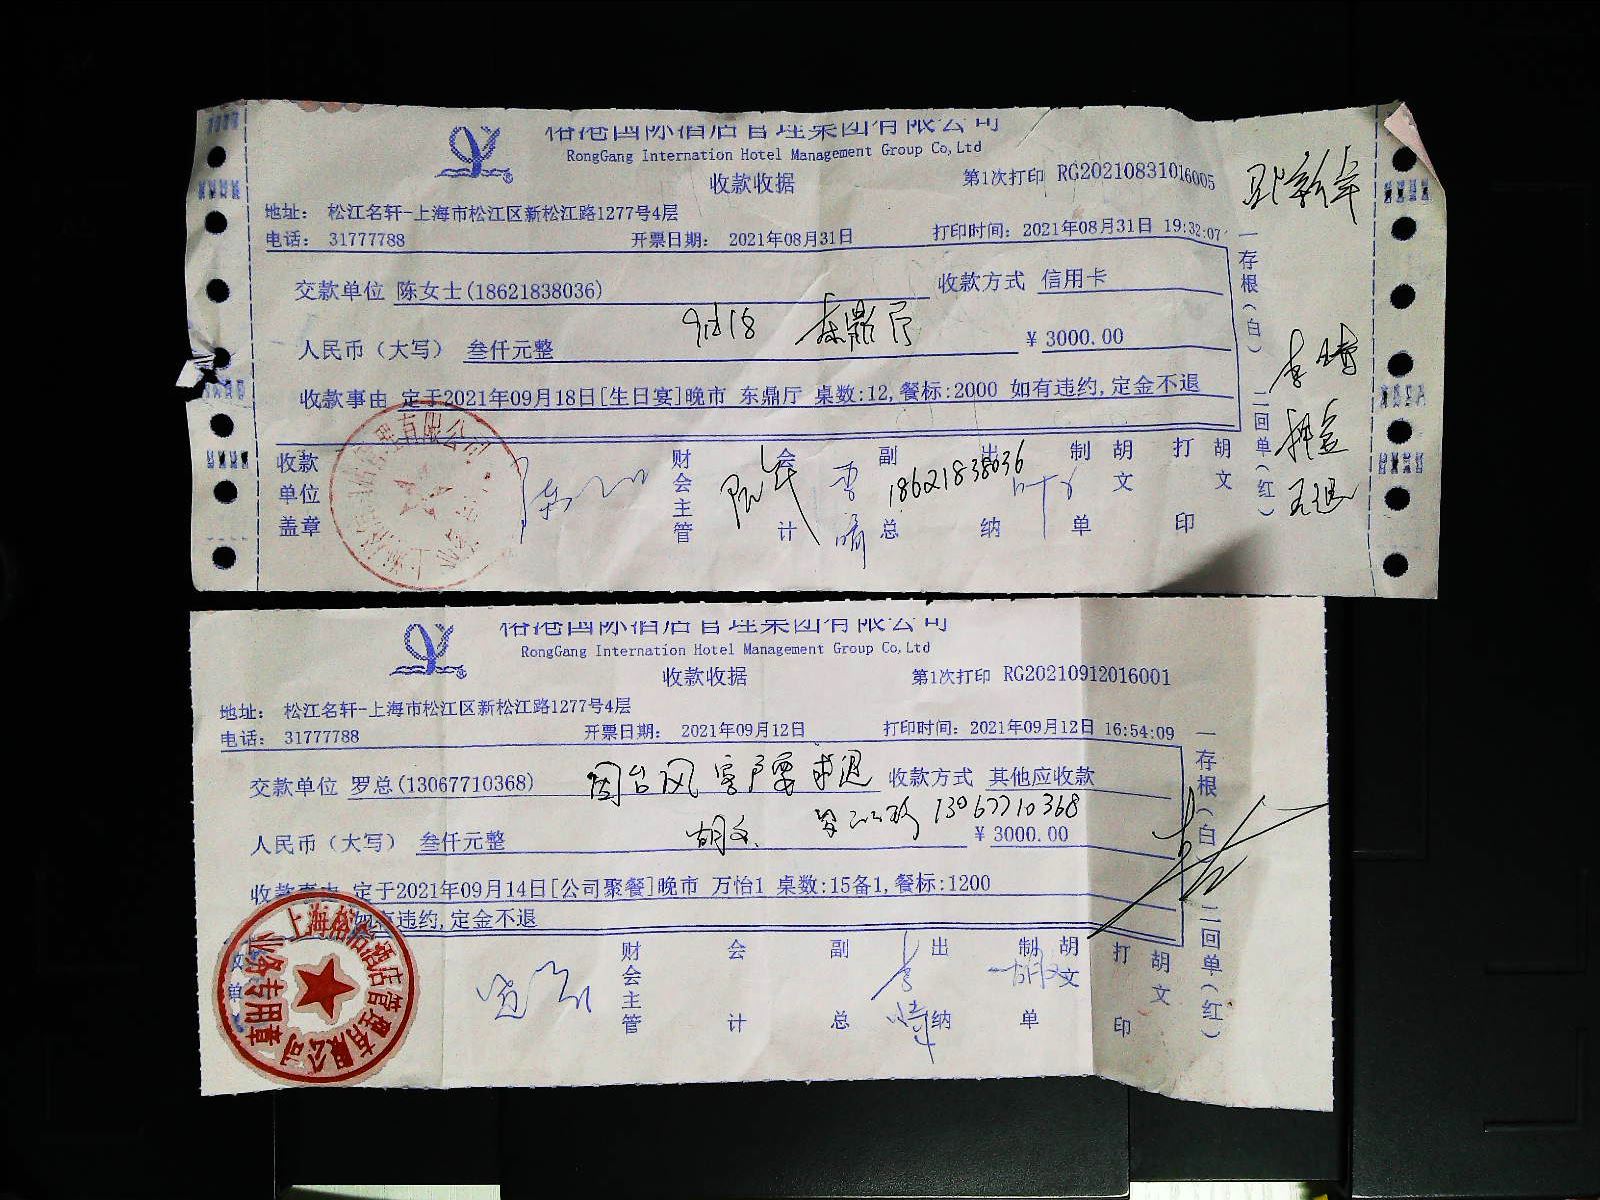 裕港国际酒店管理集团有限公司
RongGang Internation Hotel Management Group Co,Ltd
收款收据
第1次打印 RG20210831016005
地址： 松江名轩-上海市松江区新松江路1277号4层
电话： 31777788 开票日期： 2021年08月31日 打印时间：2021年08月31日 19:32:07
交款单位 陈女士(18621838036) 收款方式 信用卡
东鼎厅
人民币（大写） 叁仟元整 ¥ 3000.00
收款事由 定于2021年09月18日[生日宴]晚市 东鼎厅 桌数:12,餐标:2000 如有违约,定金不退
收款单位盖章 财会主管 会计 副总 出纳 制单 胡文 打印 胡文
18621838036
一存根（白） 二回单（红）
李晴
押金
裕港国际酒店管理集团有限公司
RongGang Internation Hotel Management Group Co,Ltd
收款收据
第1次打印 RG20210912016001
地址： 松江名轩-上海市松江区新松江路1277号4层
电话： 31777788 开票日期： 2021年09月12日 打印时间：2021年09月12日 16:54:09
交款单位 罗总(13067710368) 收款方式 其他应收款
因台风客户要求退
13067710368
胡文
人民币（大写） 叁仟元整 ¥ 3000.00
收款事由 定于2021年09月14日[公司聚餐]晚市 万怡1 桌数:15备1,餐标:1200
如有违约,定金不退
财会主管 会计 副总 出纳 制单 胡文 打印 胡文
李晴
一存根（白） 二回单（红）
上海裕浩酒店管理有限公司
业务专用章